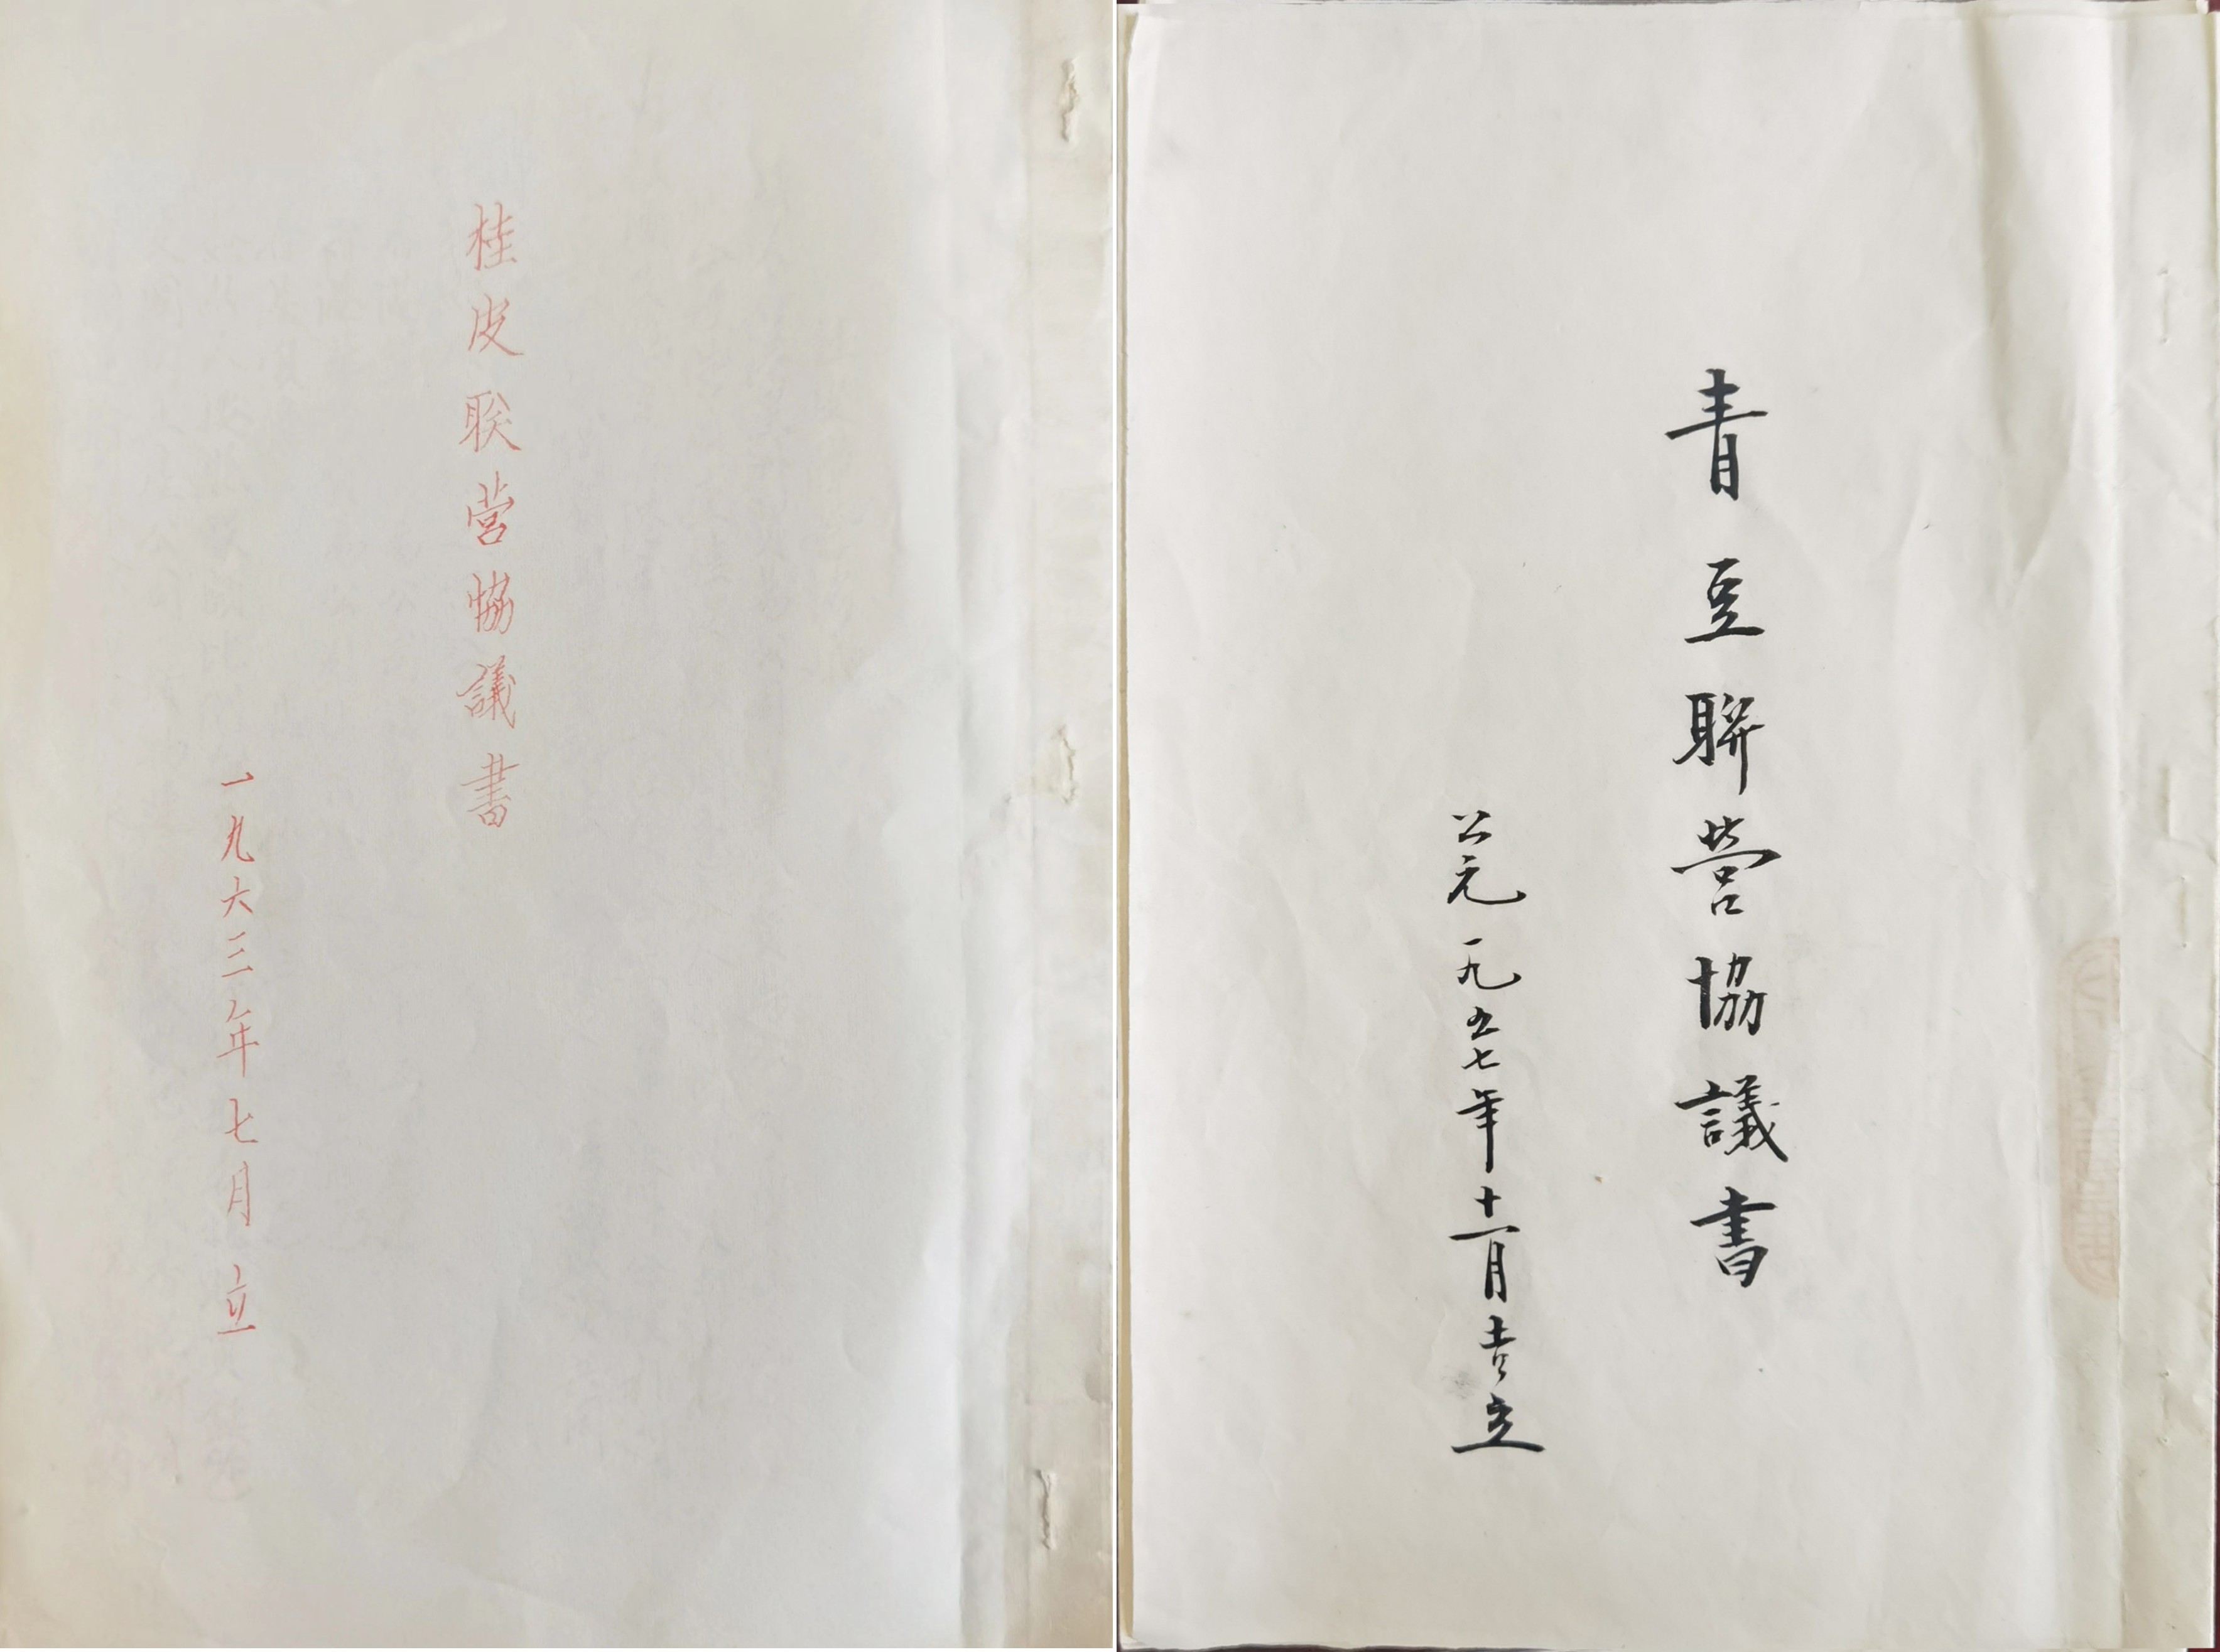 桂皮联营協議書
一九六三年七月立
青豆聨营協議書
公元一九五七年十一月吉立